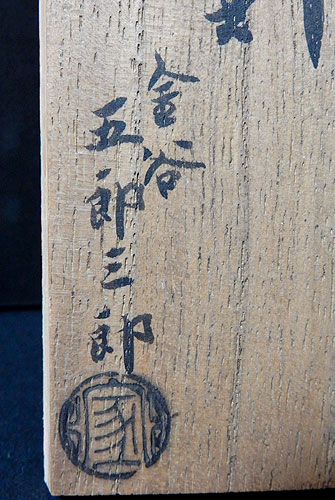 金谷
五郎三郎